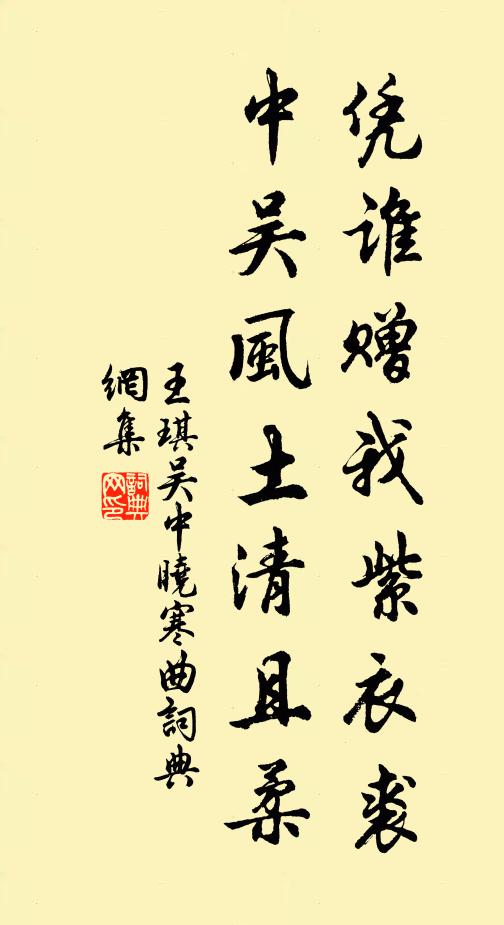 凭谁赠我紫衣裘
中吴風土清且柔
王琪吴中曉寒曲詞典
網集
詞典網印